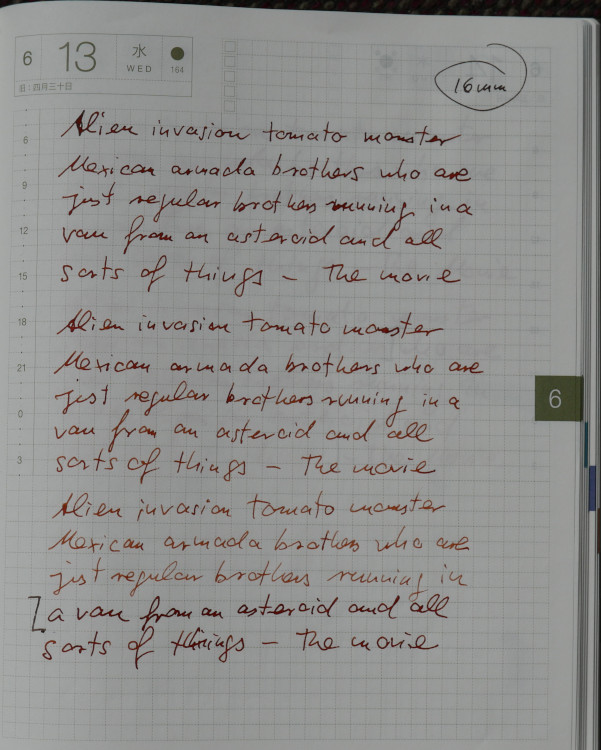 6 13 水 WED 164
旧:四月三十日
16mm
Alien invasion tomato monster
Mexican armada brothers who are
just regular brothers running in a
van from an asteroid and all
sorts of things – The movie
Alien invasion tomato monster
Mexican armada brothers who are
just regular brothers running in a
van from an asteroid and all
sorts of things – The movie
Alien invasion tomato monster
Mexican armada brothers who are
just regular brothers running in
a van from an asteroid and all
sorts of things – The movie
6
9
12
15
18
21
0
3
6